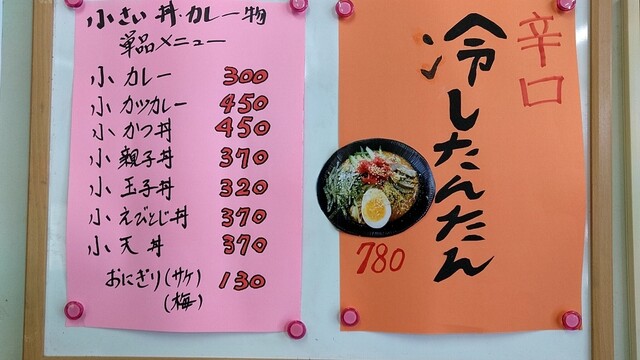 小さい丼・カレー物
単品メニュー
小カレー 300
小カツカレー 450
小かつ丼 450
小親子丼 370
小玉子丼 320
小えびとじ丼 370
小天丼 370
おにぎり(サケ) 130
(梅)
辛口
冷したんたん
780